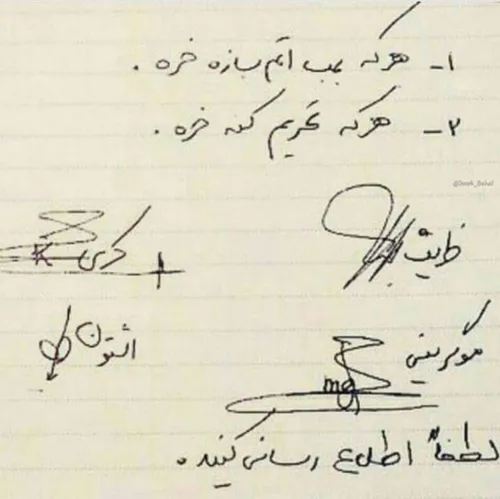 ۱- هرکه بمب اتم بسازه خره.
۲- هرکه تحریم کنه خره.
@Dansh_Bakal
ظریف
کری
K
اشتون
موگرینی
mg
لطفاً اطلاع رسانی کنید.